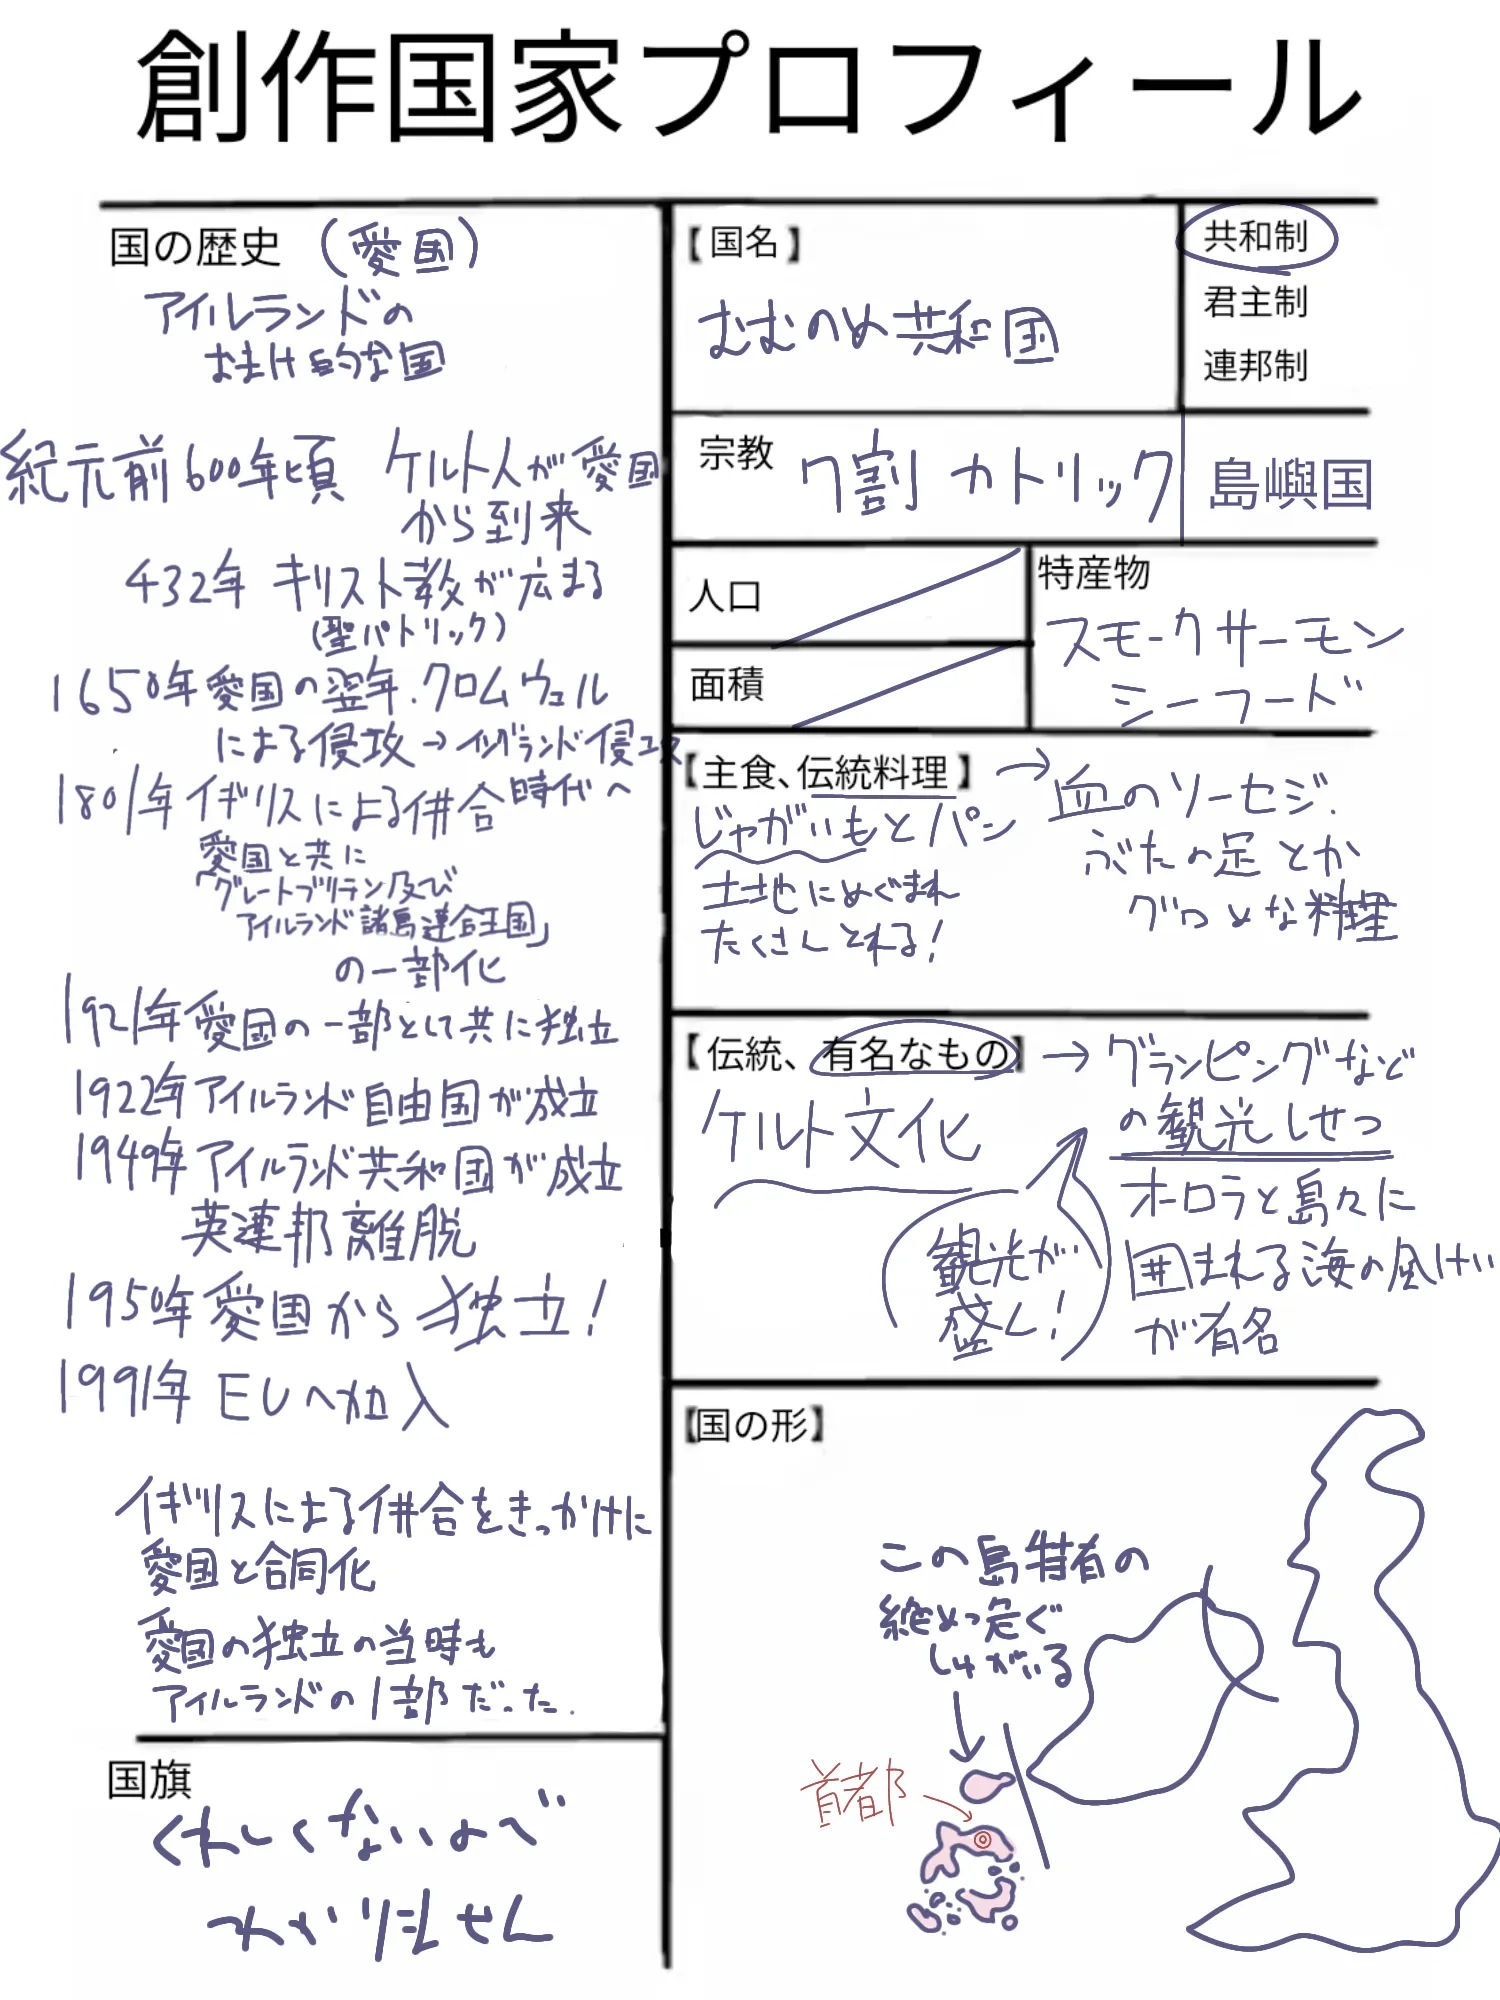 創作国家プロフィール
国の歴史 (愛国)
アイルランドの
おまけ的な国
紀元前600年頃 ケルト人が愛国
から到来
432年 キリスト教が広まる
(聖パトリック)
1650年愛国の翌年.クロムウェル
による侵攻→イングランド侵攻
1801年イギリスによる併合時代へ
愛国と共に
「グレートブリテン及び
アイルランド諸島連合王国」
の一部化
1921年愛国の一部として共に独立
1922年アイルランド自由国が成立
1949年アイルランド共和国が成立
英連邦離脱
1950年愛国から独立!
1991年 EUへ加入
イギリスによる併合をきっかけに
愛国と合同化
愛国の独立の当時も
アイルランドの1部だった.
国旗
くわしくないので
わかりません
【国名】
むむのめ共和国
共和制
君主制
連邦制
宗教 7割 カトリック
島嶼国
人口
面積
特産物
スモークサーモン
シーフード
【主食、伝統料理】
じゃがいもとパン
土地にめぐまれ
たくさんとれる!
→血のソーセジ.
ぶたの足とか
グロとな料理
【伝統、有名なもの】
ケルト文化
観光が
盛ん!
→グランピングなど
の観光しせつ
オーロラと島々に
囲まれる海の風けい
が有名
【国の形】
この島特有の
絶めつ危ぐ
しゅがいる
首都